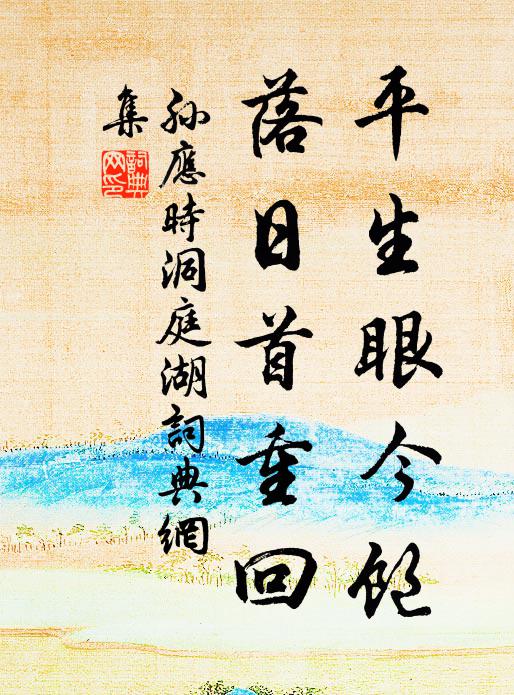 平生眼今飽
落日首重回
孫應時洞庭湖詞典網
集
詞典网印